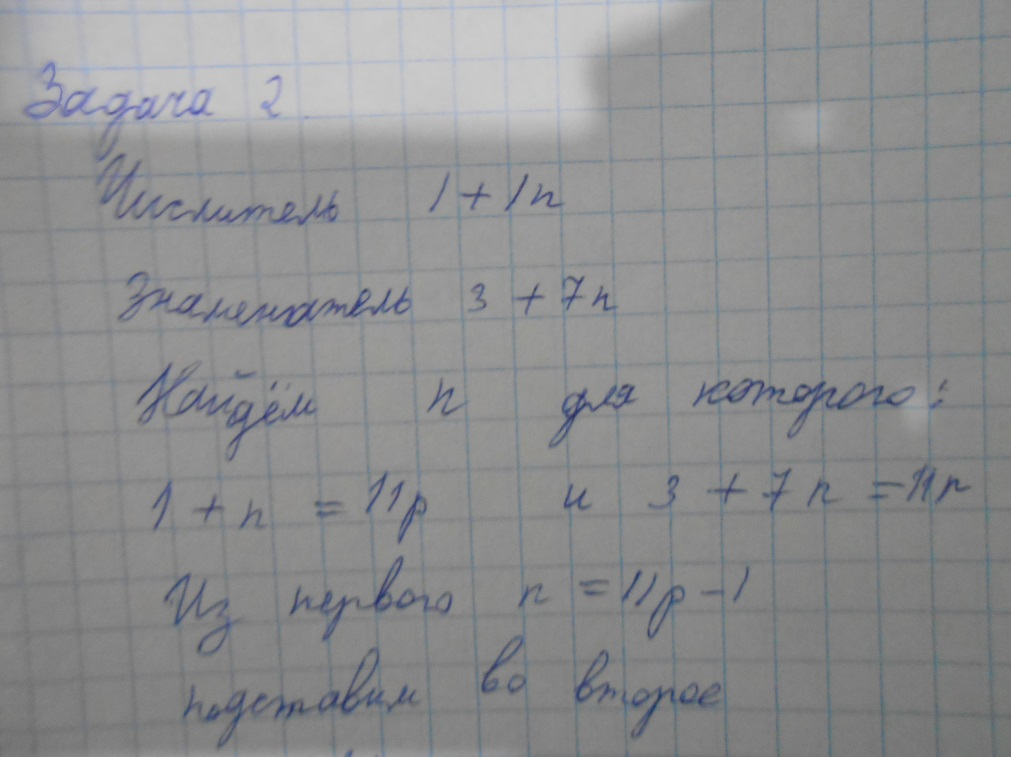 Задача 2.
Числитель 1 + 1n
Знаменатель 3 + 7n
Найдём n для которого:
1 + n = 11p и 3 + 7n = 11r
Из первого n = 11p - 1
подставим во второе